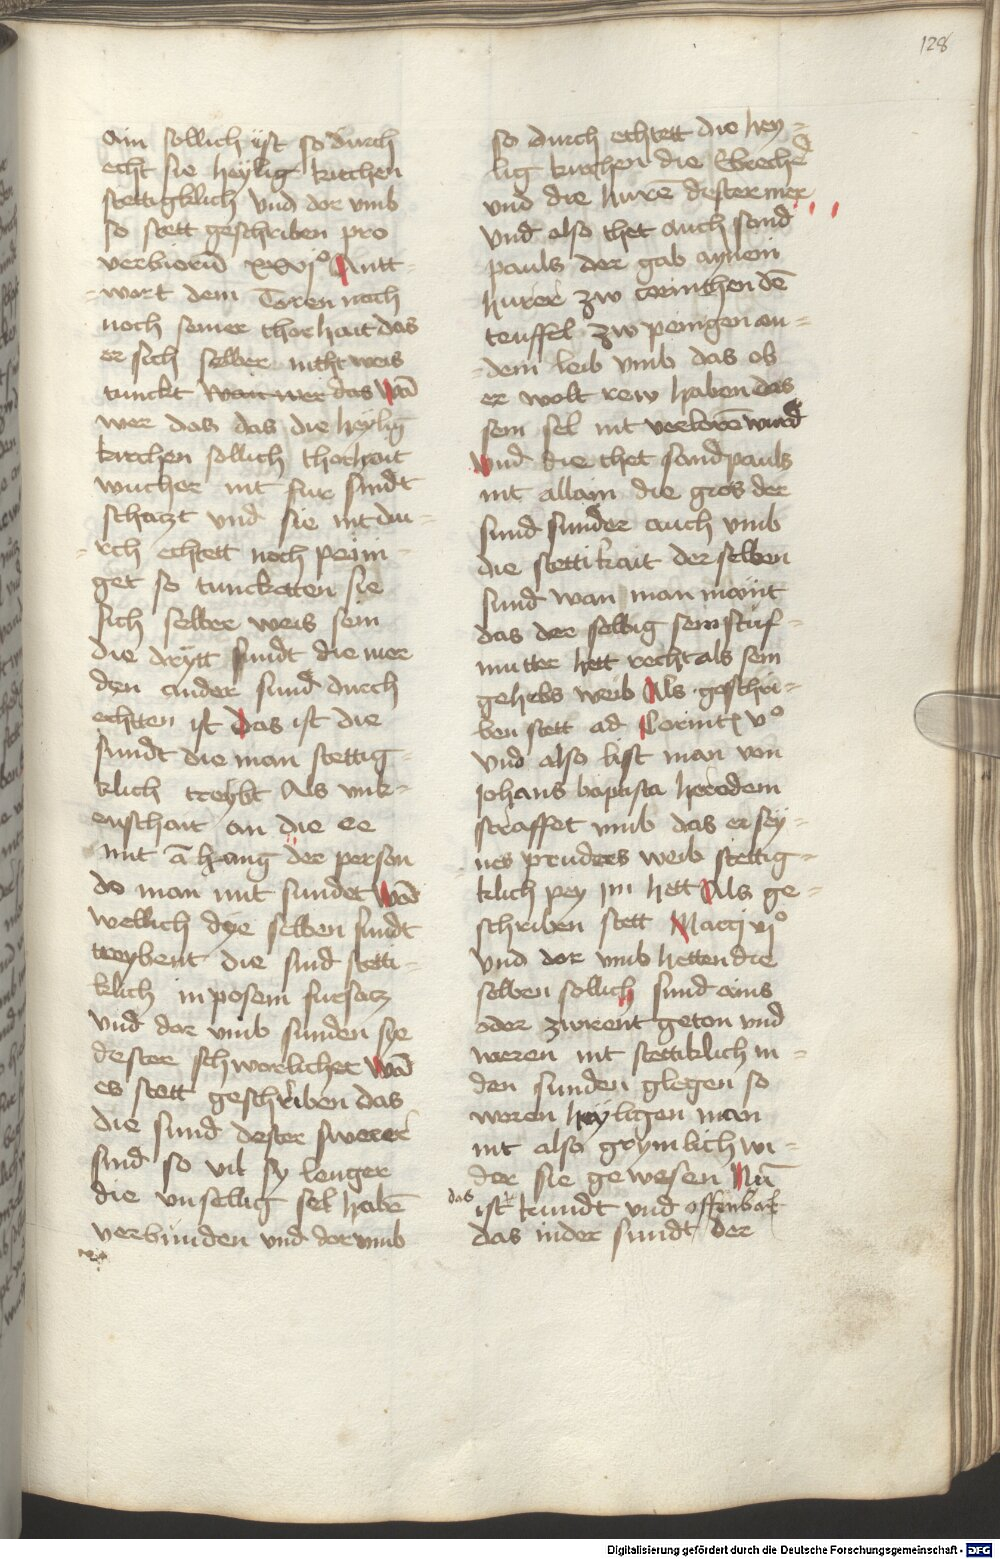 128
ain sollich ist so durch
echt sie heylig kirchen
stettigklich vnd dor vmb
so stett geschriben pro
verbiorū xxvjº Antt-
wort dem Toren nach
noch seiner thorhait das
er sich selber nitht weis
tunckt wan wer das wā
wer das das die heylig
kirchen sollich thorheit
wucher nit fur sundt
schatzt vnd sie nit du-
rch echtett noch peini-
get so tuncketten sie
sich selber weis sein
die drytt sundt die mer
den ander sund durch
echtten ist Das ist die
sundt die man stettig-
klich treybt Als vnk-
enschait an die ee
mit ā hang der person
do man mit sundet wā
wellich dye selben sundt
treybent die sind stetti-
klich in posem fursatz
vnd dor vmb sunden sye
dester schworlicher wā
es stett geschriben das
die sund dester swerer
sind so vil sy lenger
die vnsellig sel habē
verbunden vnd dor vmb
so durch echtett die hey-
lig kirchen die Ebrecher
vnd die hurē dester mer
vnd also thet auch sand
pauls der gab aynem
hurer zw corinthen dē
teuffel zw peinigen an-
dem leib vmb das ob
er wolt rew haben das
sein sel nit verlorē wurd
vnd die thet sand pauls
nit allain die gros der
sund sunder auch vmb
die stettikait der selben
sund wan man maint
das der selbig sein stuf-
mutter hett recht als sein
gehebs weib Als geschri-
ben stett ad Corint vº
vnd also list man von
johans baptista herodem
straffet vmb das er sey-
nes pruders weib stettig-
klich pey im hett Als ge-
schriben stett Marci vjº
vnd dor vmb hetten die
selben sollich sund ains
oder zwrent geton vnd
weren nit stettiklich in-
den sunden glegen so
weren heyligen man
nit also grymlich wi-
der sie gewesen Nū
das ist kundt vnd offenbar
das in der sundt der
Digitalisierung gefördert durch die Deutsche Forschungsgemeinschaft - DFG